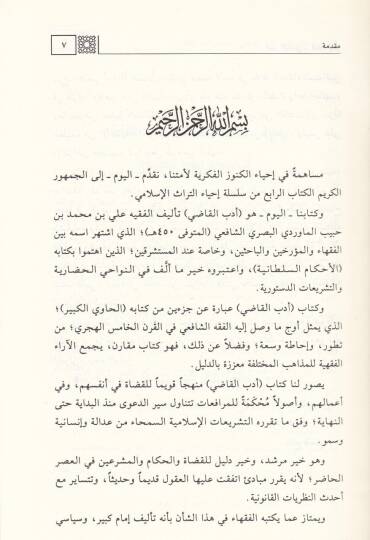 مقدمة
٧
بسم الله الرحمن الرحيم
مساهمةً في إحياء الكنوز الفكرية لأمتنا، نقدّم ـ اليوم ـ إلى الجمهور
الكريم الكتاب الرابع من سلسلة إحياء التراث الإسلامي.
وكتابنا ـ اليوم ـ هو (أدب القاضي) تأليف الفقيه علي بن محمد بن
حبيب الماوردي البصري الشافعي (المتوفى ٤٥٠هـ)؛ الذي اشتهر اسمه بين
الفقهاء والمؤرخين والباحثين، وخاصة عند المستشرقين؛ الذين اهتموا بكتابه
(الأحكام السلطانية)، واعتبروه خير ما ألّف في النواحي الحضارية
والتشريعات الدستورية.
وكتاب (أدب القاضي) عبارة عن جزءين من كتابه (الحاوي الكبير)؛
الذي يمثل أوج ما وصل إليه الفقه الشافعي في القرن الخامس الهجري؛ من
تطور، وإحاطة وسعة؛ وفضلاً عن ذلك، فهو كتاب مقارن، يجمع الآراء
الفقهية للمذاهب المختلفة معززة بالدليل.
يصور لنا كتاب (أدب القاضي) منهجاً قويماً للقضاة في أنفسهم، وفي
أعمالهم، وأصولاً مُحْكَمَةً للمرافعات تتناول سير الدعوى منذ البداية حتى
النهاية؛ وفق ما تقرره التشريعات الإسلامية السمحاء من عدالة وإنسانية
وسمو.
وهو خير مرشد، وخير دليل للقضاة والحكام والمشرعين في العصر
الحاضر؛ لأنه يقرر مبادئ اتفقت عليها العقول قديماً وحديثاً، وتتساير مع
أحدث النظريات القانونية.
ويمتاز عما يكتبه الفقهاء في هذا الشأن بأنه تأليف إمام كبير، وسياسي